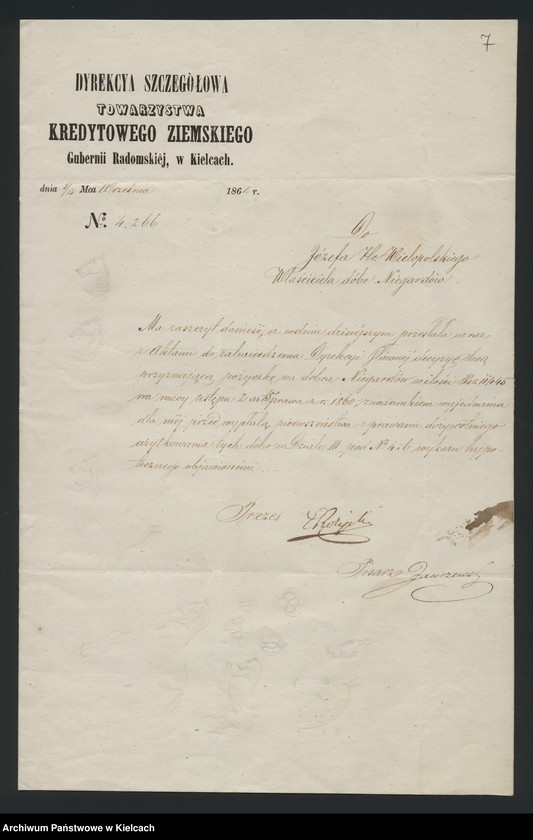 7
DYREKCYA SZCZEGÓŁOWA
TOWARZYSTWA
KREDYTOWEGO ZIEMSKIEGO
Gubernii Radomskiéj, w Kielcach.
dnia Mca Września 186 r.
№ 4.266
Do
Józefa Hr. Wielopolskiego
Właściciela dóbr Niegardów
Ma zaszczyt donieść, iż w dniu dzisiejszym przesłała wraz
z Aktami do zatwierdzenia Dyrekcyi Głównej decyzyę swoją
przyznającą pożyczkę na dobra Niegardów w ilości
na mocy ustępu 2 art Prawa z r. 1860, z warunkiem wyjednania
dla niéj przed wypłatą pierwszeństwa przed prawami dożywotniego
użytkowania tych dóbr w Dziale III pod № 4 i 6 wykazu hypo-
tecznego objawionemi.
Prezes
Pisarz
Archiwum Państwowe w Kielcach